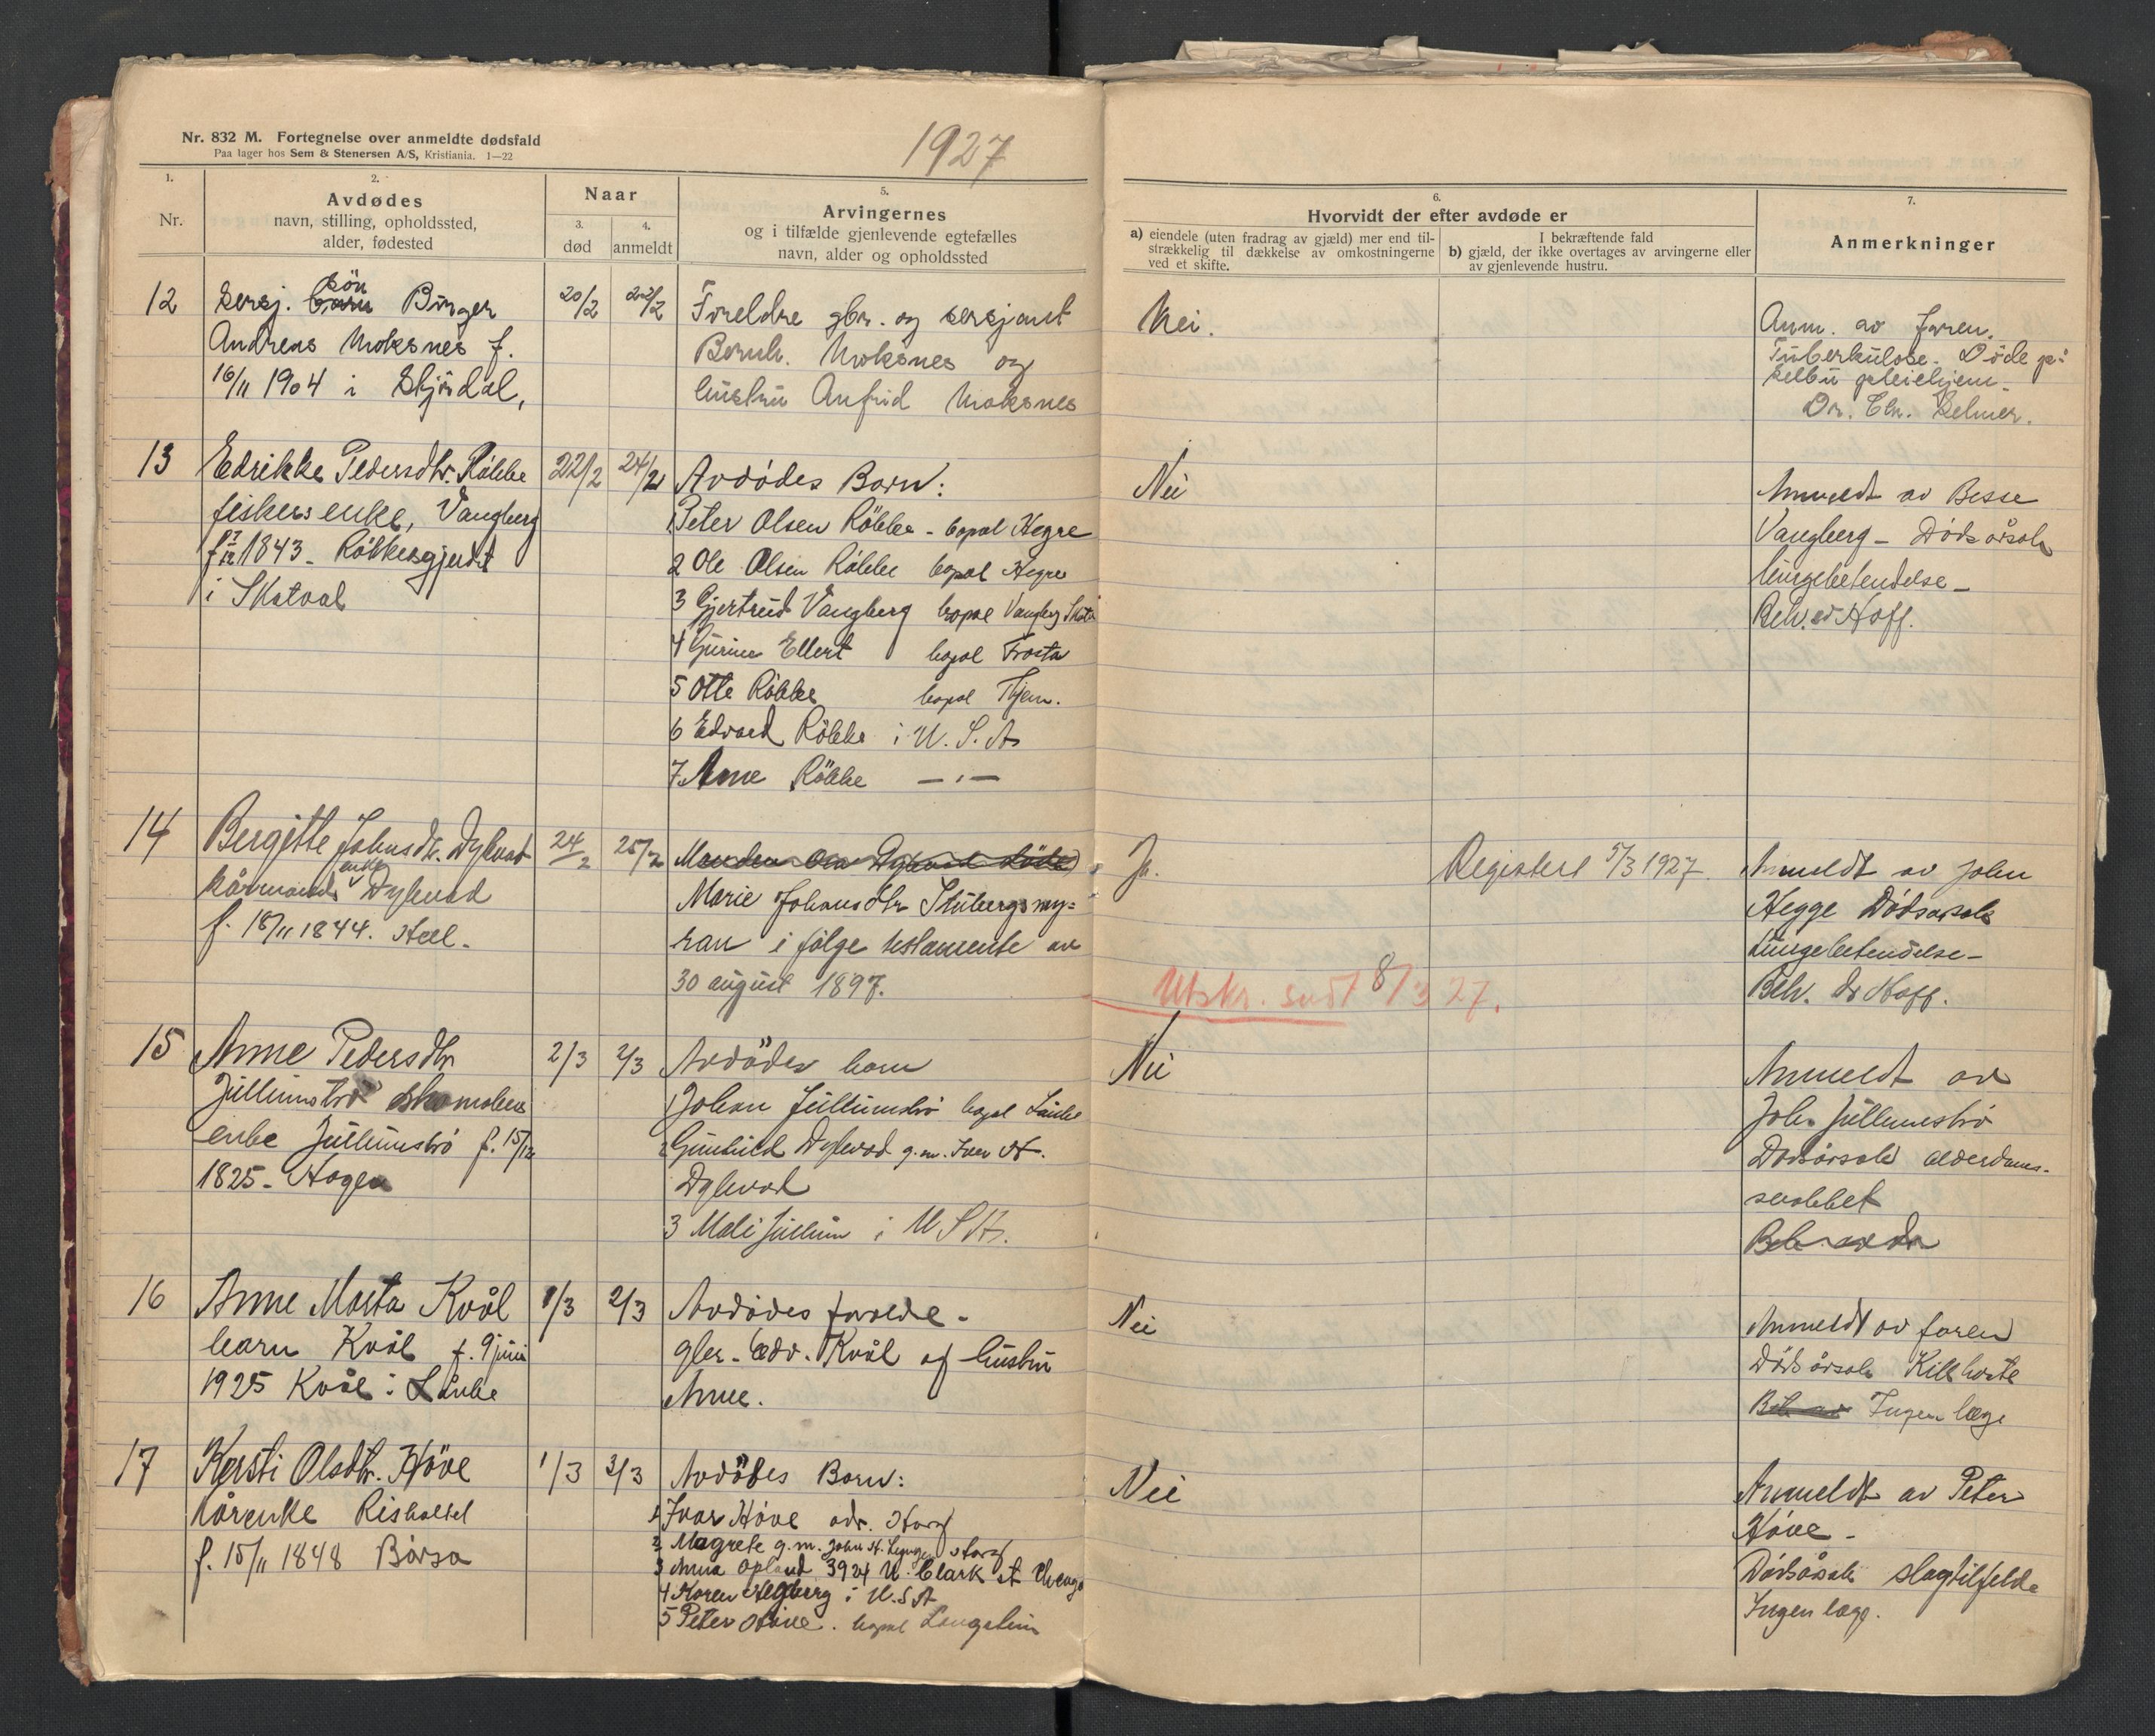 Nr. 832 M. Fortegnelse over anmeldte dødsfald
Paa lager hos Sem & Stenersen A/S, Kristiania. 1—22
1927
1.
Nr.
2.
Avdødes
navn, stilling, opholdssted,
alder, fødested
Naar
3.
død
4.
anmeldt
5.
Arvingernes
og i tilfælde gjenlevende egtefælles
navn, alder og opholdssted
6.
Hvorvidt der efter avdøde er
a) eiendele (uten fradrag av gjæld) mer end til-
strækkelig til dækkelse av omkostningerne
ved et skifte.
I bekræftende fald
b) gjæld, der ikke overtages av arvingerne eller
av gjenlevende hustru.
7.
Anmerkninger
12
sersj. barn søn Birger
Andreas Moksnes f.
16/11 1904 i Stjørdal,
20/2
22/2
Foreldre gbr. og sersjant
Bernh. Moksnes og
hustru Anfrid Moksnes
Nei.
Anm. av faren.
Tuberkulose. Døde på
Selbu pleiehjem.
Dr. Chr. Selmer.
13
Edrikke Pedersdtr. Røkke
fiskers enke, Vangberg
1843 - Røkkesgjerdet
i Skatval
22/2
24/2
Avdødes Barn:
1 Peter Olsen Røkke - bopæl Hegre
2 Ole Olsen Røkke bopæl Hegre
3 Gjertrud Vangberg bopæl Vangberg Skatv
4 Ellert bopæl Frosta
5 Otte Røkke bopæl Thjem.
6 Edvard Røkke i U.S.A
7 Arne Røkke — " —
Nei
Anmeldt av Besse
Vangberg - Dødsårsak
lungebetendelse -
Beh. dr Hoff.
14
Bergitte Johnsdtr. Dyblvad
kårmands enke
f. 18/11 1844.
24/2
25/2
Marie Johansdtr Stubergsmy=
ran i følge testamente av
30 august 1897.
Ja.
Registert 5/3 1927.
Utskr. sendt 8/3 27.
Anmeldt av John
Hegge Dødsårsak
Lungebetendelse -
Beh. dr Hoff.
15
Anne Pedersdtr
Jullumstrø
enke Jullumstrø f. 15/12
1825 -
2/3
2/3
Avdødes barn
1 Johan Jullumstrø bopæl Lånke
2 g.m. Iver
3 Mali Jullum i U S A.
Nei
Anmeldt av
Joh. Jullumstrø
Dødsårsak alderdoms-
svakhet
16
Anne Marta Kvål
barn Kvål f. 9 juni
1925 Kvål i Lånke
1/3
2/3
Avdødes foreldre -
gbr. Edv. Kvål og hustru
Anne.
Nei
Anmeldt av faren
Dødsårsak Kikhoste
Beh av Ingen læge
17
Kersti Olsdtr. Høve
kårenke
f. 15/11 1848 Børsa
1/3
3/3
Avdødes Barn:
1 Ivar Høve adr.
2 Magrete g.m. John
3 Anna Opland 3924 N. Clark st Chicago
4 Karen i U.S.A
5 Peter Høve. bopæl Langstein
Nei
Anmeldt av Peter
Høve -
Dødsårsak slagtilfelde
Ingen læge.